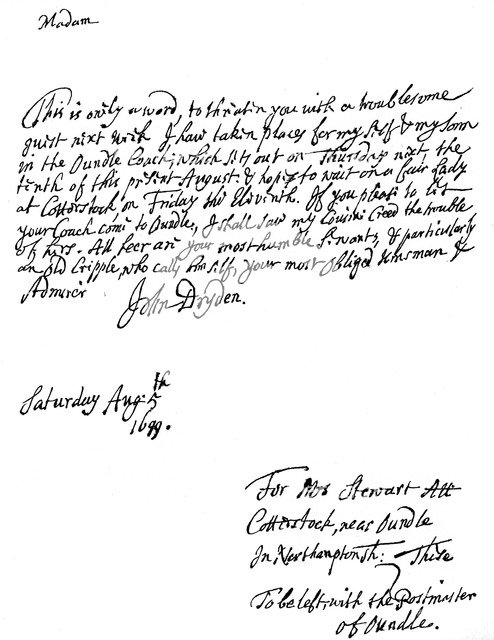 Madam
This is only a word, to threaten you with a troublesome
guest next week. I have taken places for my self & my Sonn
in the Oundle Coach, which sets out on Thursday next the
tenth of this present August & hope to wait on a fair Lady
at Cotterstock, on Friday the Eleventh. If you please to let
your Coach come to Oundle, I shall save my Cousin Creed the trouble
of hers. All heer are your most humble Servants, & particularly
an old Cripple, who calls him self, your most obliged Kinsman &
Admirer
John Dryden.
Saturday Aug: 5th
1699.
For Mrs Stewart Att
Cotterstock, near Oundle
In Northamptonsh: These
To be left with the Postmaster
of Oundle.